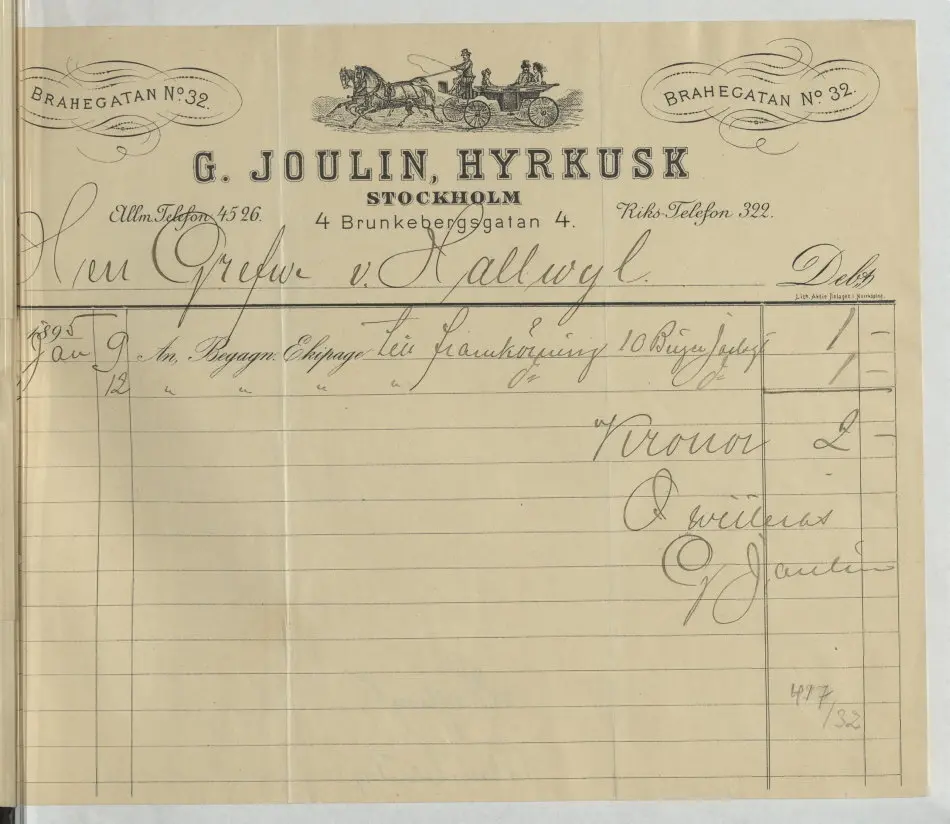 BRAHEGATAN No 32.
BRAHEGATAN No 32.
G. JOULIN, HYRKUSK
STOCKHOLM
Allm. Telefon 4526.
4 Brunkebergsgatan 4.
Riks-Telefon 322.
Herr Grefve v. Hallwyl. Debet
1895
Jan 9 An, Begagn. Ekipage till framkörning 10 1 —
12 " " " " do do 1 —
Kronor 2 —
Qwitteras
G Joulin
417/32